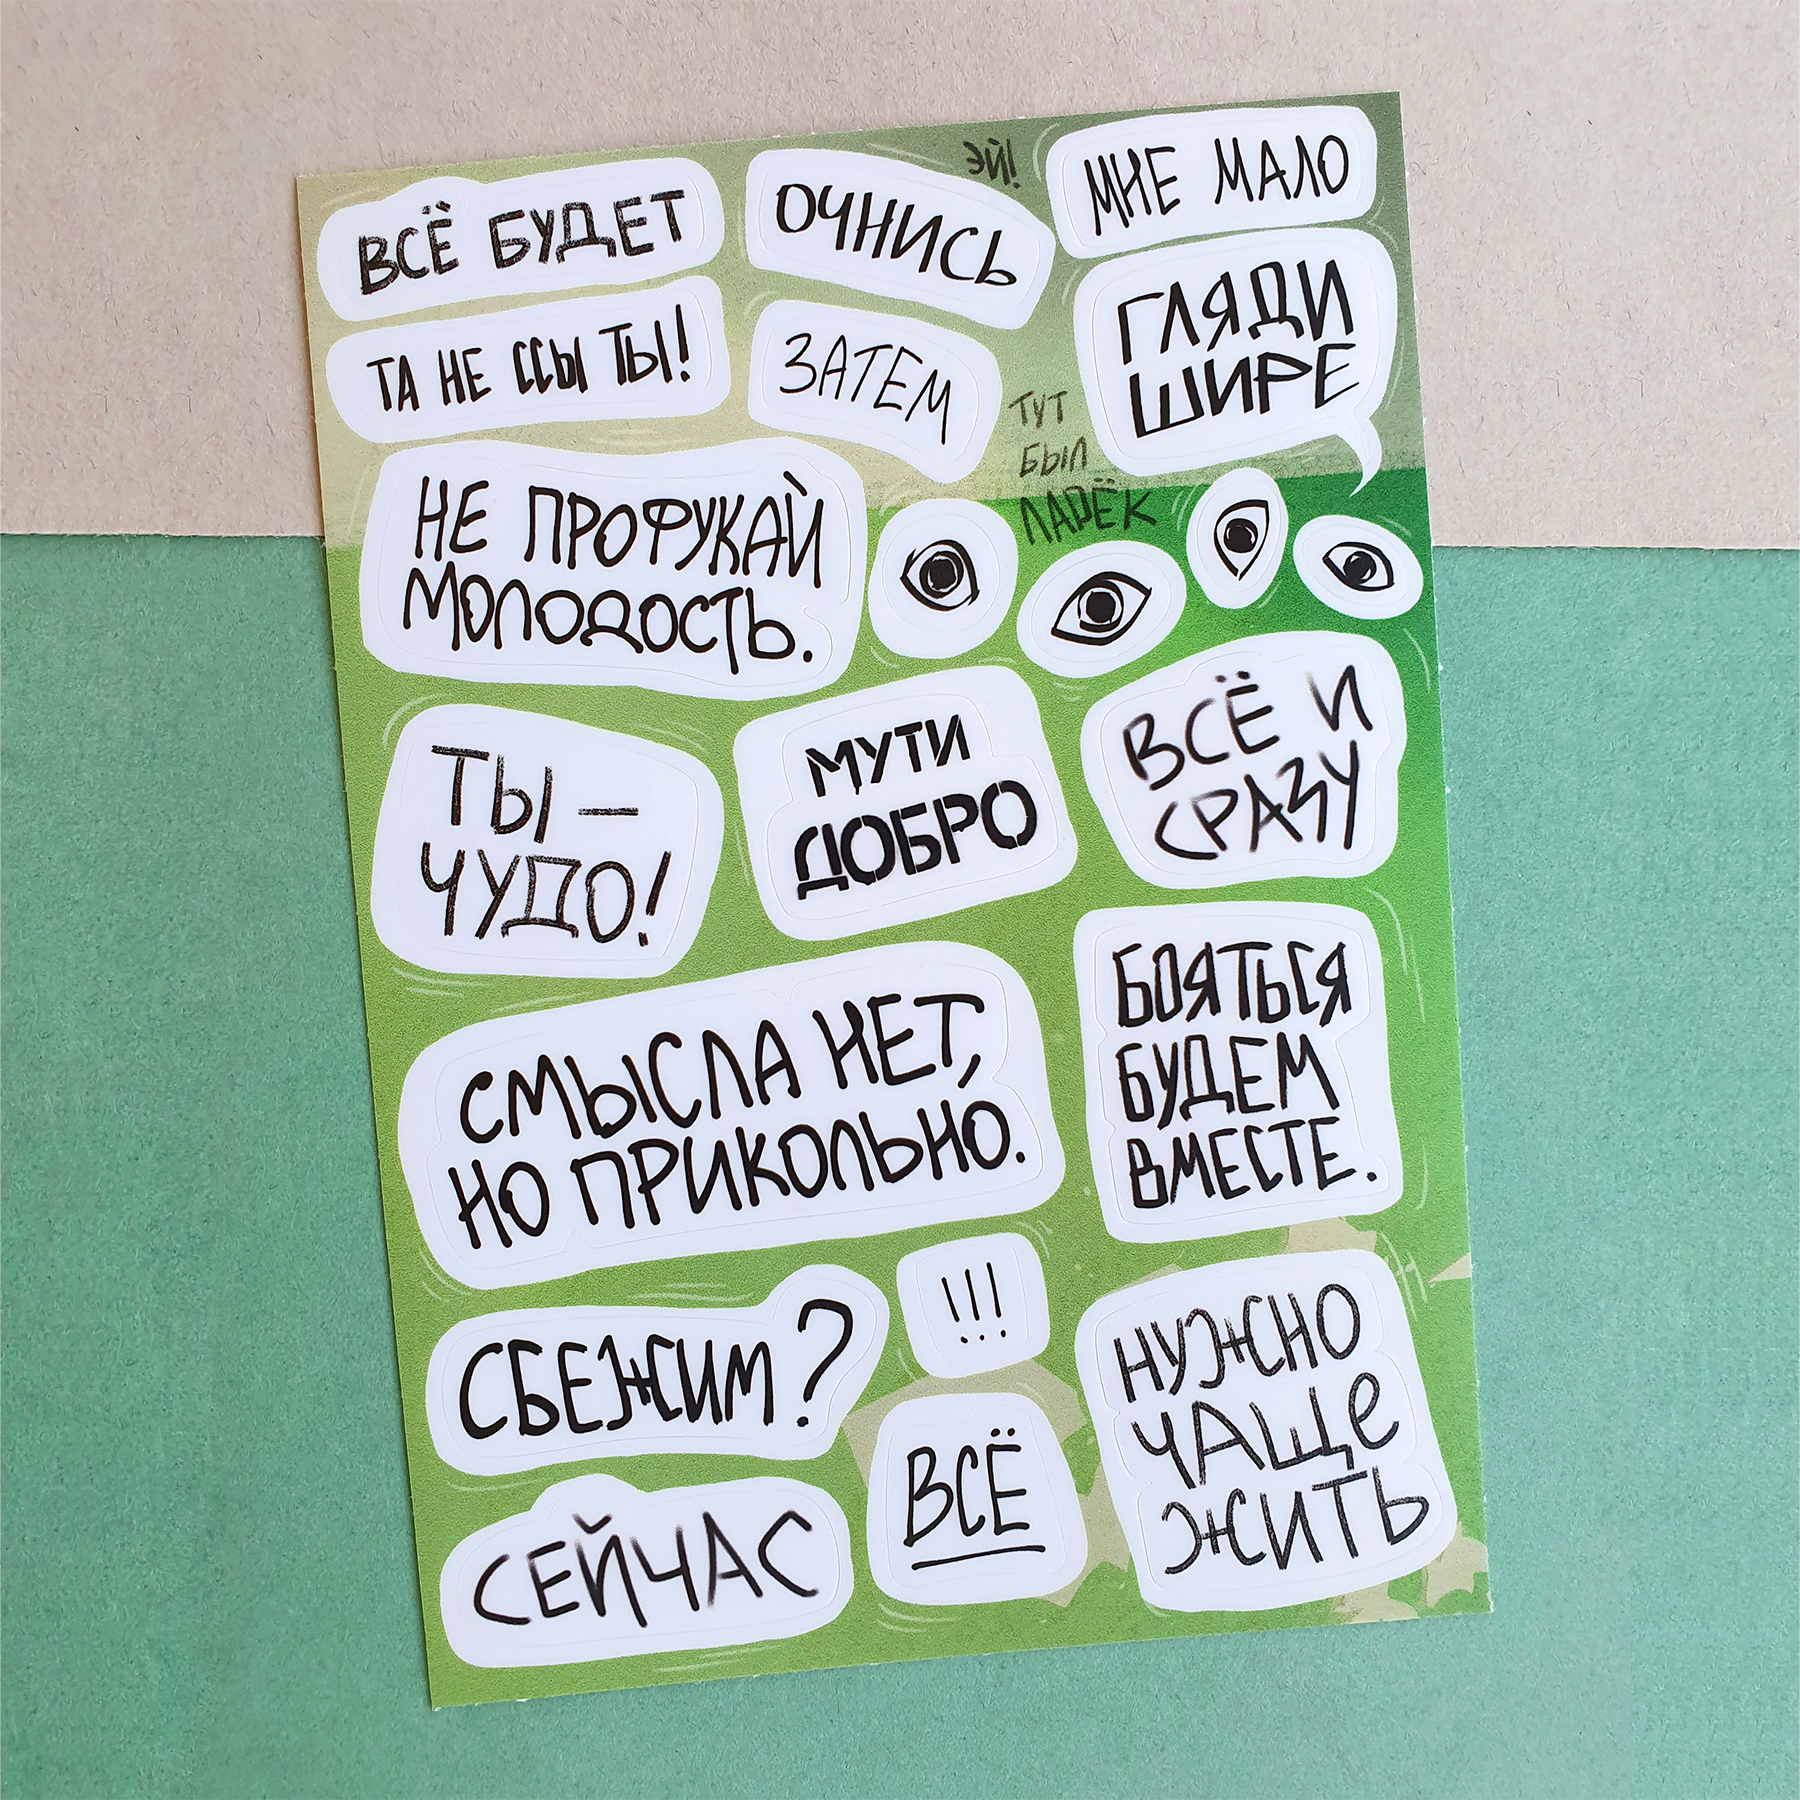 ВСЁ БУДЕТ
ОЧНИСЬ
ЭЙ!
МНЕ МАЛО
ТА НЕ ССЫ ТЫ!
ЗАТЕМ
ГЛЯДИ
ШИРЕ
ТУТ
БЫЛ
ЛАРЁК
НЕ ПРОФУКАЙ
МОЛОДОСТЬ.
ТЫ —
ЧУДО!
МУТИ
ДОБРО
ВСЁ И
СРАЗУ
СМЫСЛА НЕТ,
НО ПРИКОЛЬНО.
БОЯТЬСЯ
БУДЕМ
ВМЕСТЕ.
СБЕЖИМ?
!!!
НУЖНО
ЧАЩЕ
ЖИТЬ
СЕЙЧАС
ВСЁ